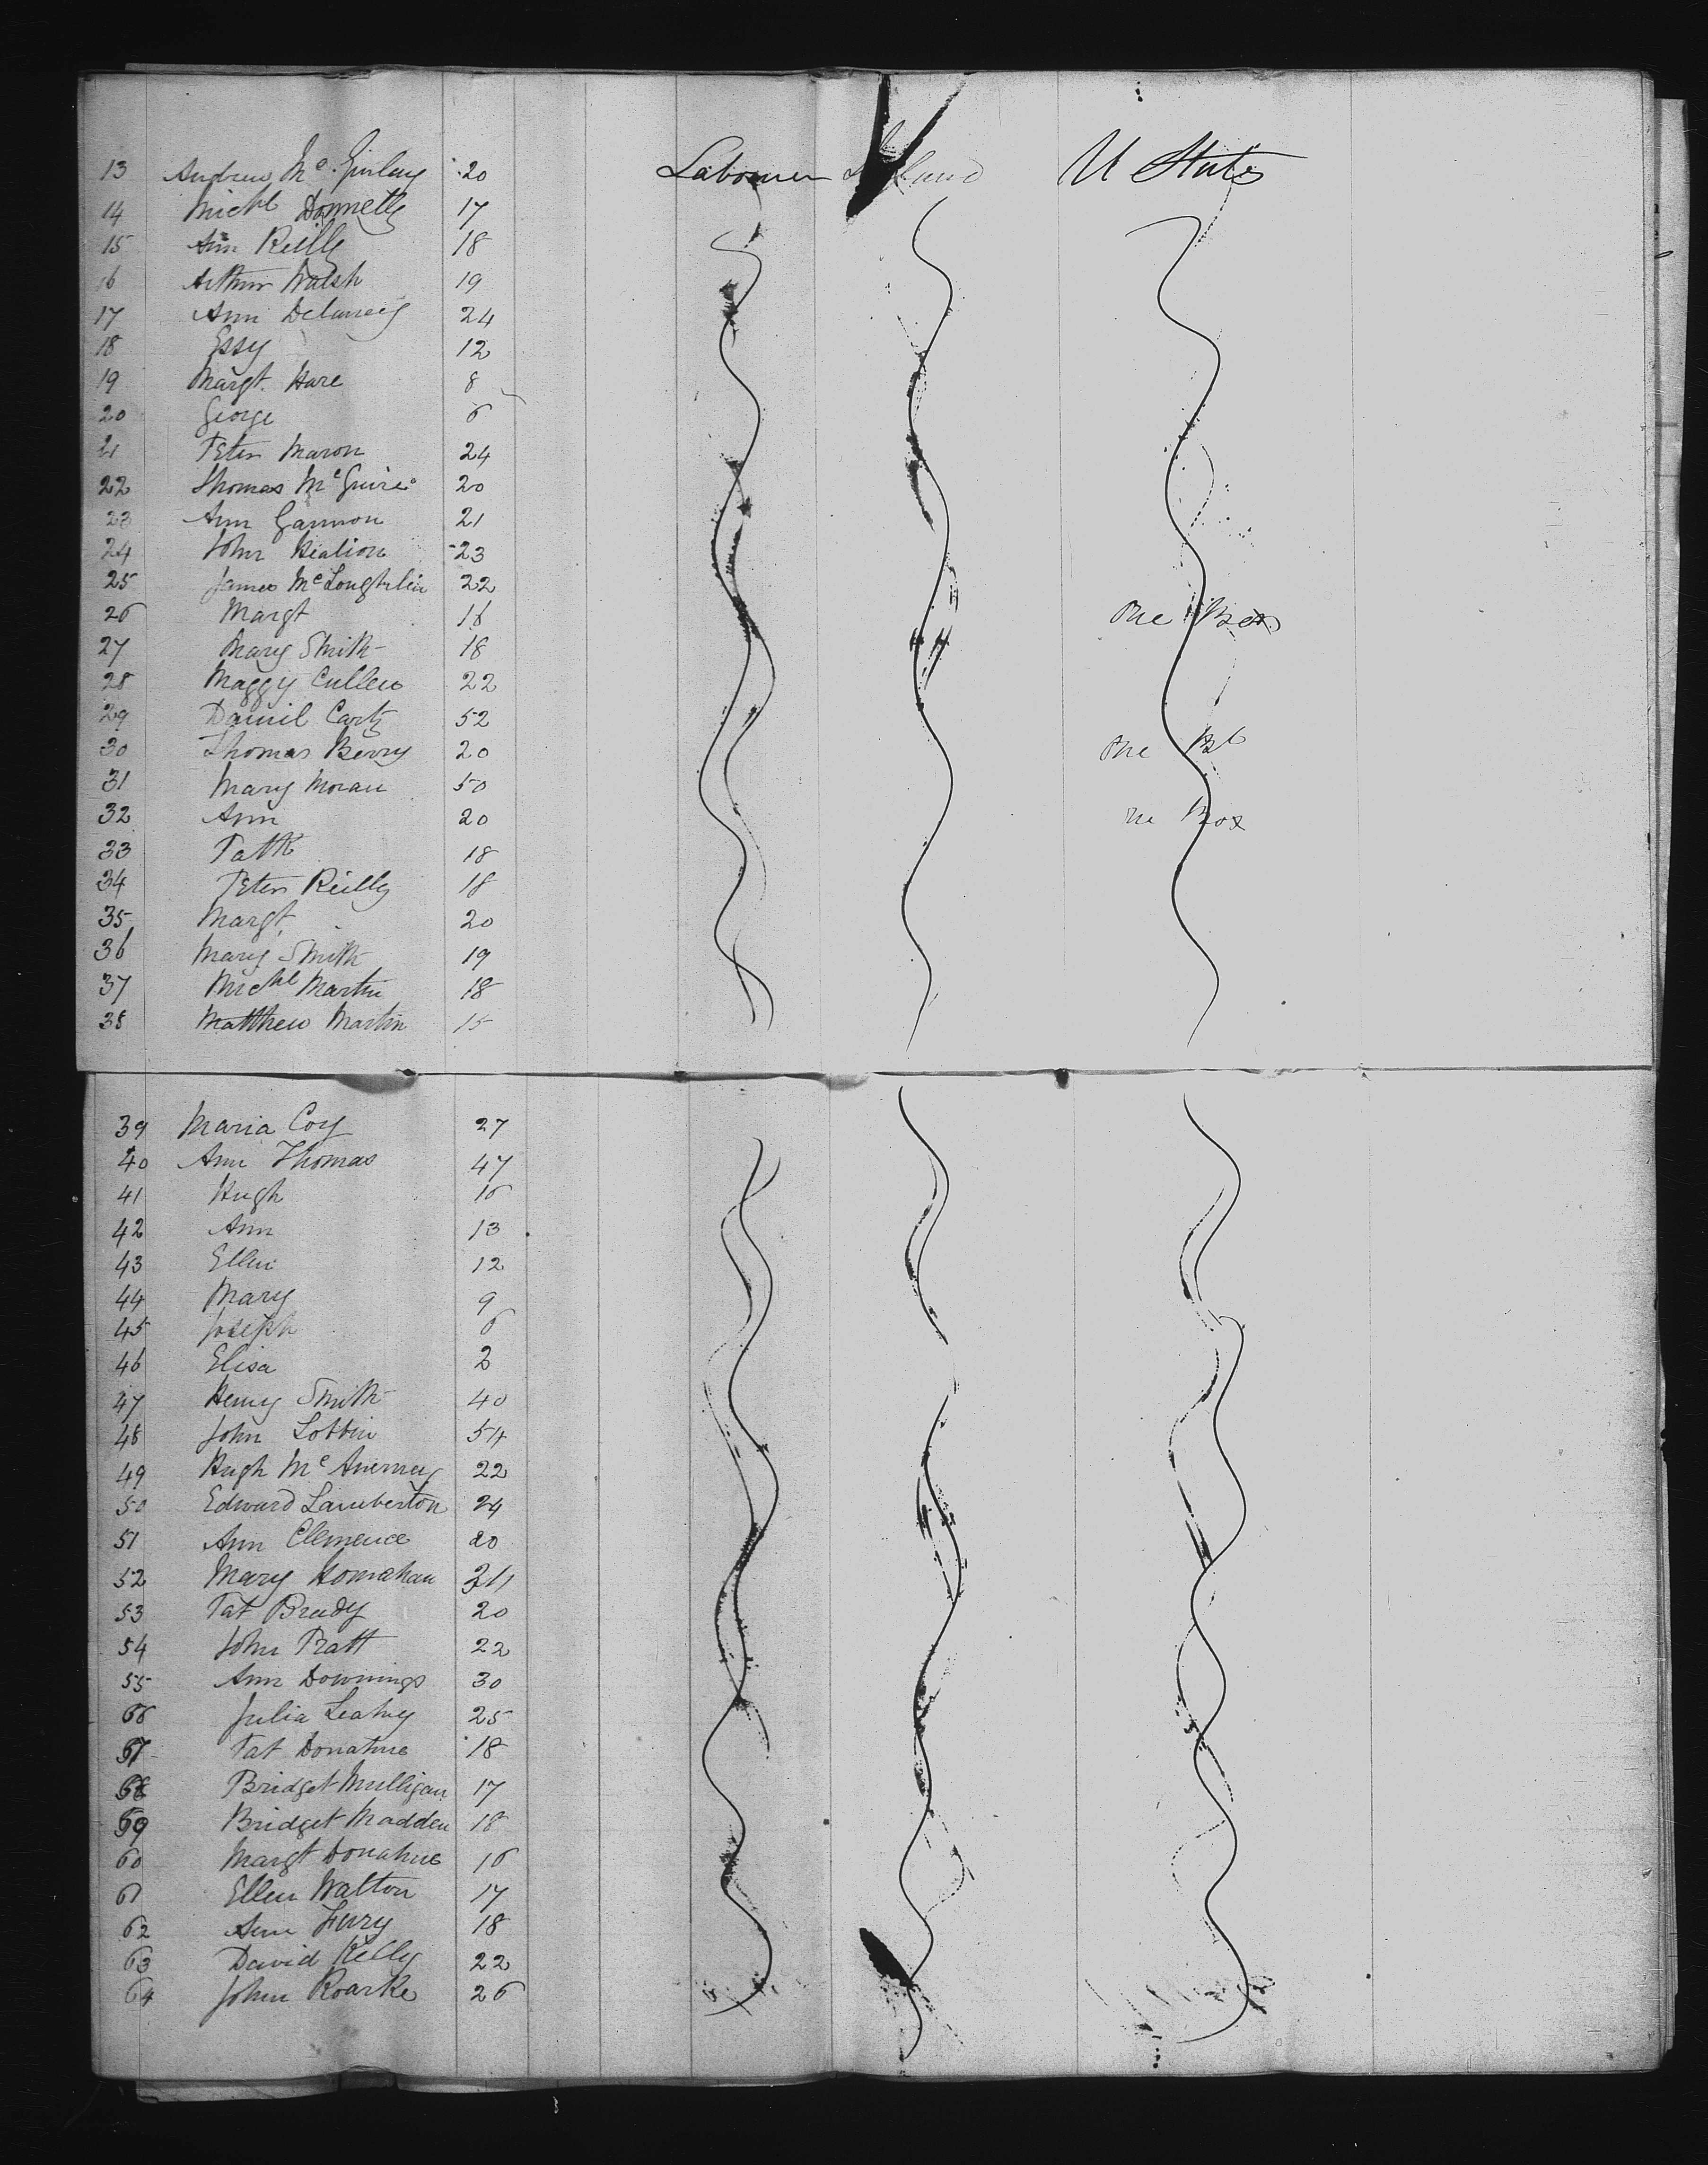 13 Andrew Mc. Ginlay 20 Labourer Ireland U States
14 Michl Donnelly 17
15 Ann Reilly 18
16 Arthur Walsh 19
17 Ann Delaney 24
18 Essy 12
19 Margt. Hare 8
20 George 6
21 Peter Maron 24
22 Thomas McGuire 20
23 Ann Gannon 21
24 John 23
25 James McLoughlin 22
26 Margt 16 One Box
27 Mary Smith 18
28 Maggy Cullen 22
29 Daniel Carty 52
30 Thomas Berry 20 One Bt
31 Mary Moran 50
32 Ann 20 Box
33 Patk 18
34 Peter Reilly 18
35 Margt 20
36 Mary Smith 19
37 Michl Martin 18
38 Matthew Martin 15
39 Maria Coy 27
40 Ann Thomas 47
41 Hugh 16
42 Ann 13
43 Ellen 12
44 Mary 9
45 Joseph 6
46 Elisa 2
47 Henry Smith 40
48 John 54
49 Hugh Mc 22
50 Edward Lamberton 24
51 Ann Clemence 20
52 Mary
53 Pat Brady 20
54 John Pratt 22
55 Ann Downings 30
56 Julia Leahy 25
57 Pat Donahue 18
58 Bridget Mulligan 17
59 Bridget Madden 18
60 Margt Donahue 16
61 Ellen Walton 17
62 Ann Fury 18
63 David Kelly 22
64 John Roarke 26